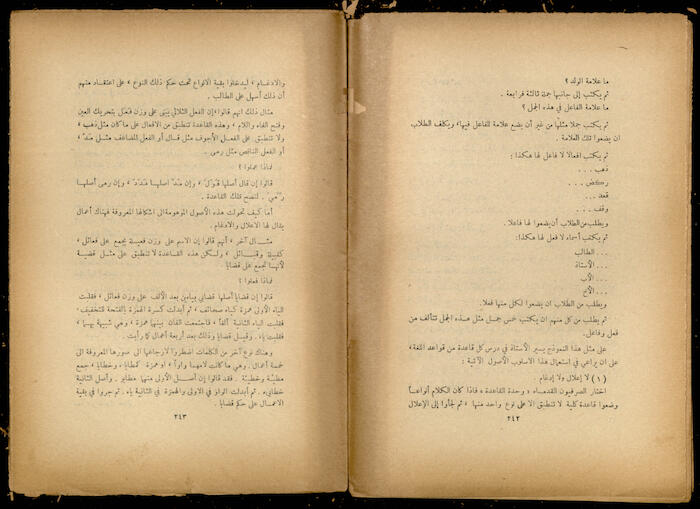 ما علامة الولد ؟
ثم يكتب إلى جانبها جملة ثالثة فرابعة .
ما علامة الفاعل في هذه الجمل ؟
ثم يكتب جملا مثلها من غير أن يضع علامة للفاعل فيها، ويكلف الطلاب
ان يضعوا تلك العلامة .
ثم يكتب افعالا لا فاعل لها هكذا :
ذهب . . .
ركض . . .
قعد . . .
وقف . . .
ويطلب من الطلاب أن يضعوا لها فاعلا .
ثم يكتب أسماء لا فعل لها هكذا :
. . . الطالب
. . . الأستاذ
. . . الأب
. . . الأخ
ويطلب من الطلاب ان يضعوا لكل منها فعلا .
ثم يطلب من كل منهم ان يكتب خمس جمل مثل هذه الجمل تتألف من
فعل وفاعل .
على مثل هذا النموذج يسير الأستاذ في درس كل قاعدة من قواعد اللغة ،
على ان يراعي في استعمال هذا الاسلوب الأصول الآتية :
( ١ ) لا إعلال ولا إدغام .
اختار الصرفيون القدماء « وحدة القاعدة » فاذا كان الكلام أنواعاً
وضعوا قاعدة كلية لا تنطبق الا على نوع واحد منها ، ثم لجأوا إلى الإعلال
٢٤٢
والادغام ، ليدخلوا بقية الانواع تحت حكم ذلك النوع ، على اعتقاد منهم
أن ذلك أسهل على الطالب .
مثال ذلك انهم قالوا إن الفعل الثلاثي يبنى على وزن فَعَل بتحريك العين
وفتح الفاء واللام ، وهذه القاعدة تنطبق من الافعال على ما كان مثل ذهب ،
ولا تنطبق على الفعل الأجوف مثل قال أو الفعل المضاعف مثل مدّ ،
أو الفعل الناقص مثل رمى .
فماذا عملوا ؟
قالوا إن قال أصلها قَوَل ، وإن مدّ اصلها مَدَدَ ، وإن رمى أصلها
رَمَي . لتصح تلك القاعدة .
أما كيف تحولت هذه الأصول الموهومة الى اشكالها المعروفة فهناك أعمال
يقال لها الاعلال والادغام .
مثال آخر ، أنهم قالوا إن الاسم على وزن فعيلة يجمع على فعائل ،
كقبيلة وقبائل ، ولكن هذه القاعدة لا تنطبق على مثل قضية
لأنها تجمع على قضايا .
فماذا فعلوا ؟
قالوا إن قضايا أصلها قضايي بياءين بعد الألف على وزن فعائل ، فقلبت
الياء الأولى همزة كياء صحائف ، ثم أبدلت كسرة الهمزة بالفتحة للتخفيف،
فقلبت الياء الثانية ألفاً ، فاجتمعت الفان بينهما همزة ، وهي شبيهة بهما ،
فقلبت ياء . وقيل قضايا وذلك بعد أربعة أعمال كما رأيت .
وهناك نوع آخر من الكلمات اضطروا لارجاعها الى صورها المعروفة الى
خمسة أعمال . وهي ما كانت لامها واواً ، او همزة كمطايا ، وخطايا ، جمع
مطية وخطيئة . فقد قالوا إن أصل الأولى منها مطايو . وأصل الثانية
خطاييء . ثم أبدلت الواو في الاولى والهمزة في الثانية ياء . ثم جروا في بقية
الاعمال على حكم قضايا .
٢٤٣